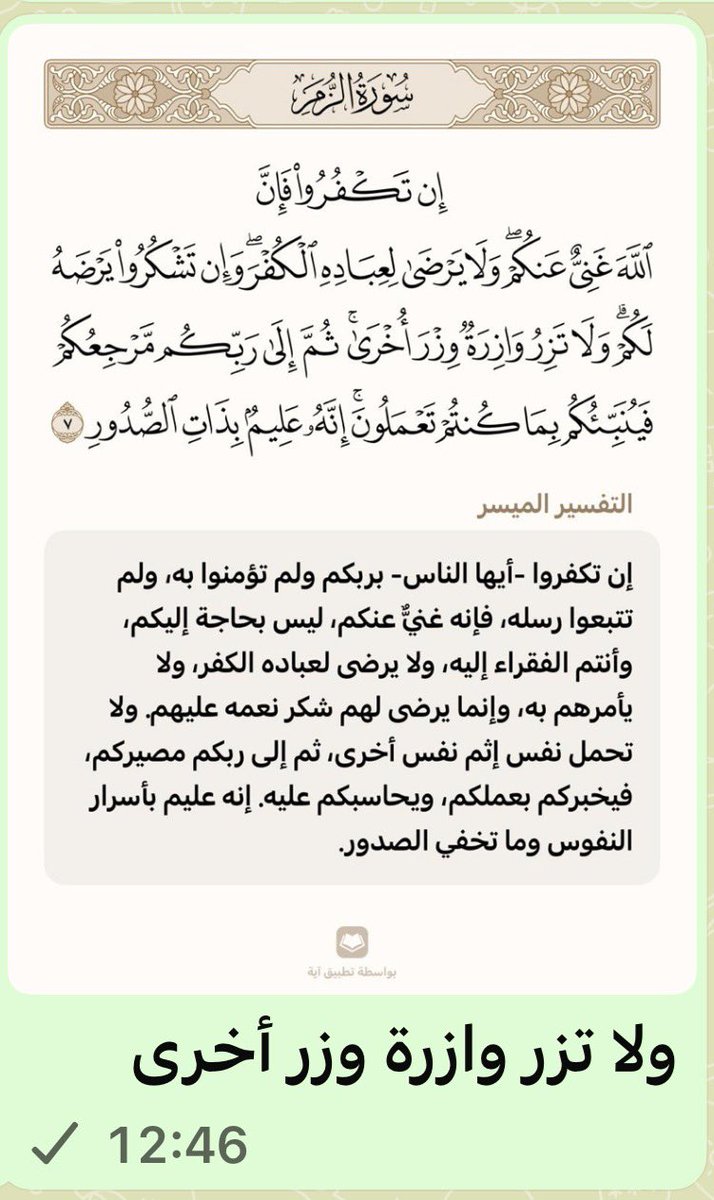 سُورَةُ الزُّمَرِ
إِن تَكْفُرُوا۟ فَإِنَّ
ٱللَّهَ غَنِىٌّ عَنكُمْ ۖ وَلَا يَرْضَىٰ لِعِبَادِهِ ٱلْكُفْرَ ۖ وَإِن تَشْكُرُوا۟ يَرْضَهُ
لَكُمْ ۗ وَلَا تَزِرُ وَازِرَةٌ وِزْرَ أُخْرَىٰ ۚ ثُمَّ إِلَىٰ رَبِّكُم مَّرْجِعُكُمْ
فَيُنَبِّئُكُم بِمَا كُنتُمْ تَعْمَلُونَ ۚ إِنَّهُۥ عَلِيمٌۢ بِذَاتِ ٱلصُّدُورِ ٧
التفسير الميسر
إن تكفروا -أيها الناس- بربكم ولم تؤمنوا به، ولم
تتبعوا رسله، فإنه غنيٌّ عنكم، ليس بحاجة إليكم،
وأنتم الفقراء إليه، ولا يرضى لعباده الكفر، ولا
يأمرهم به، وإنما يرضى لهم شكر نعمه عليهم. ولا
تحمل نفس إثم نفس أخرى، ثم إلى ربكم مصيركم،
فيخبركم بعملكم، ويحاسبكم عليه. إنه عليم بأسرار
النفوس وما تخفي الصدور.
بواسطة تطبيق آية
ولا تزر وازرة وزر أخرى
12:46